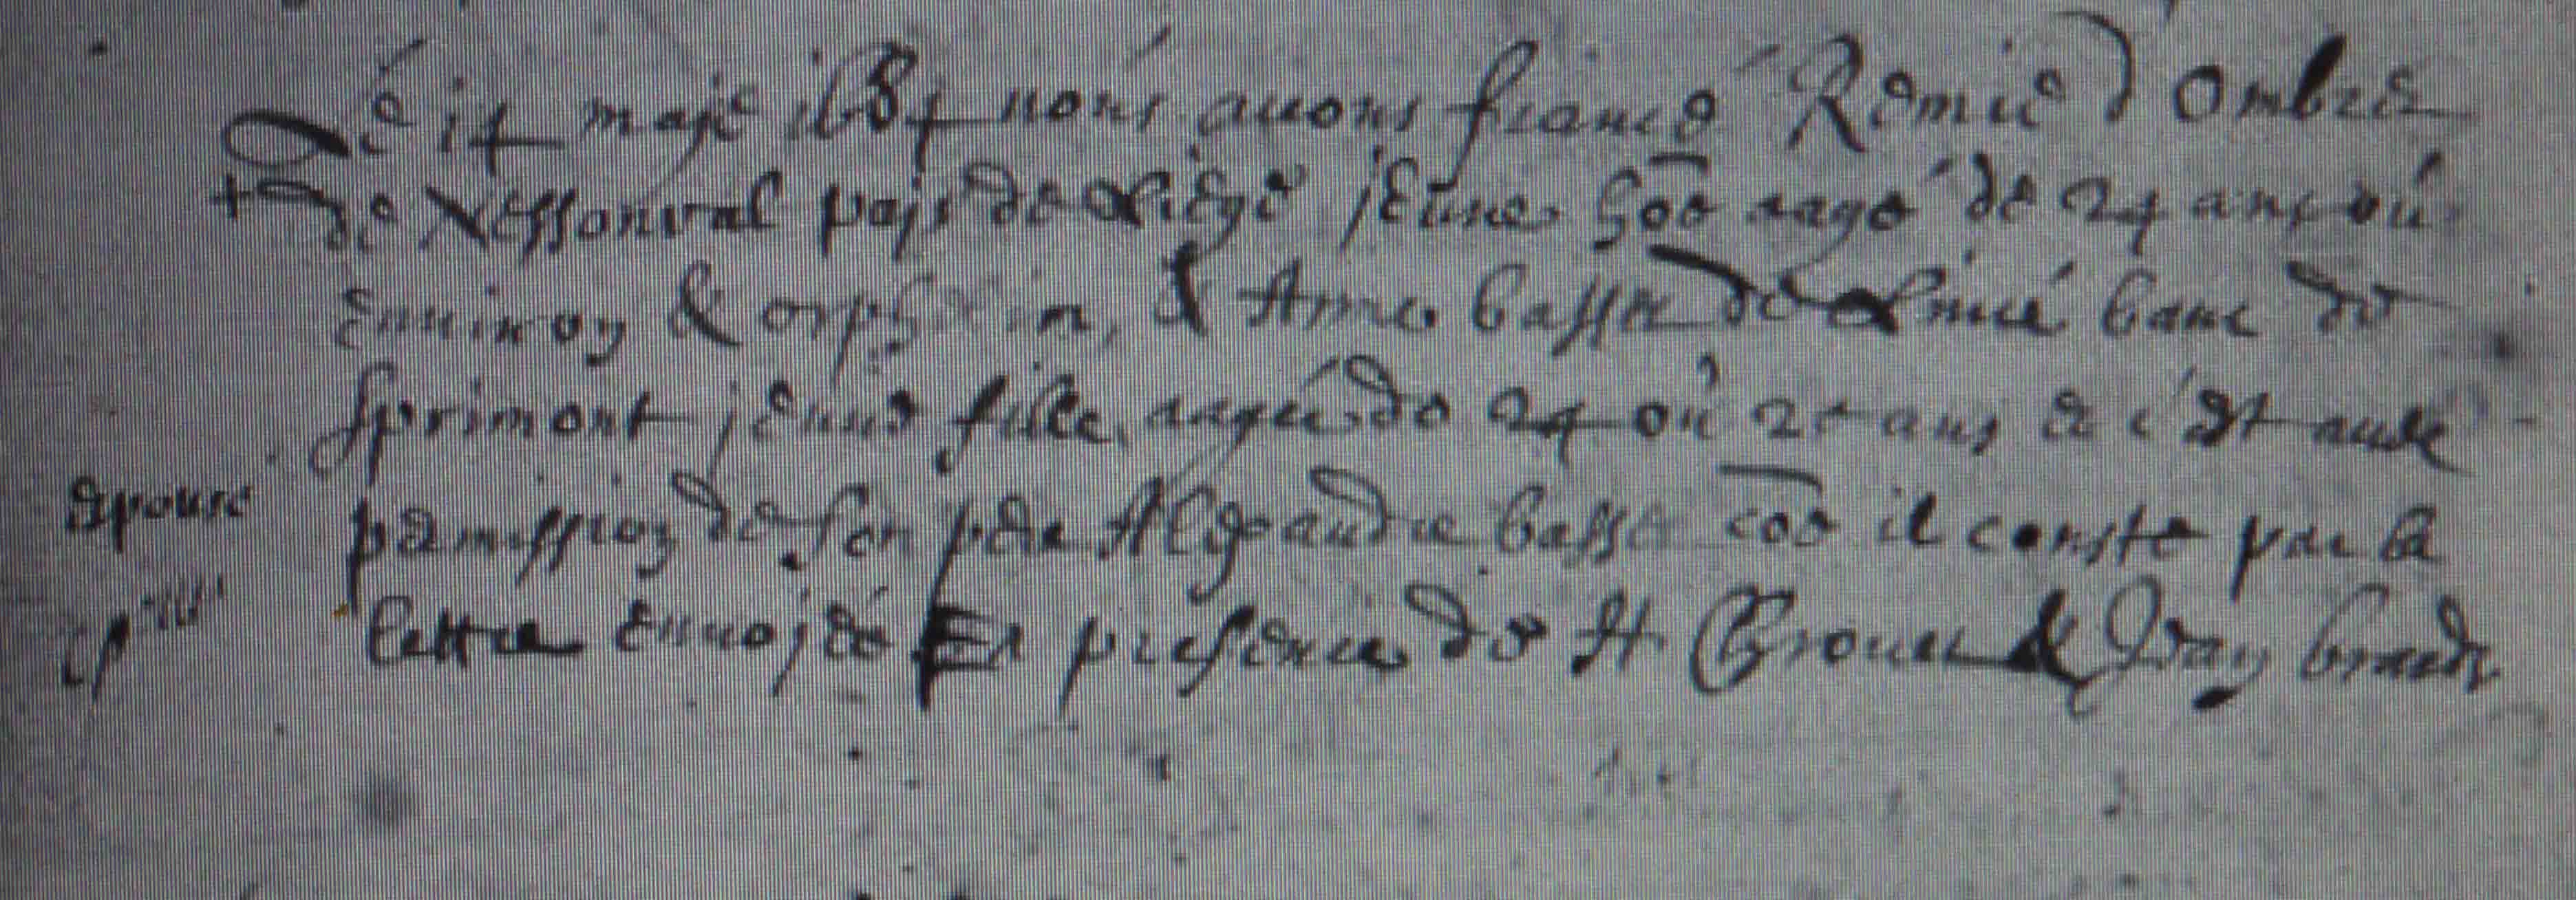 Le 14 maje 1684 nous avons fiancé Remie d'Ombret
+ de Xessonval pajs de Liége jeune hōe aagé de 24 ans ou
environ & orphelin, & Anne basse de Lincé banc de
Sprimont jeune fille aagée de 24 ou 25 ans & c'est avec
permission de son pere Alexandre basse cōe il conste par la
lettre envojée En presence de H &
epousé